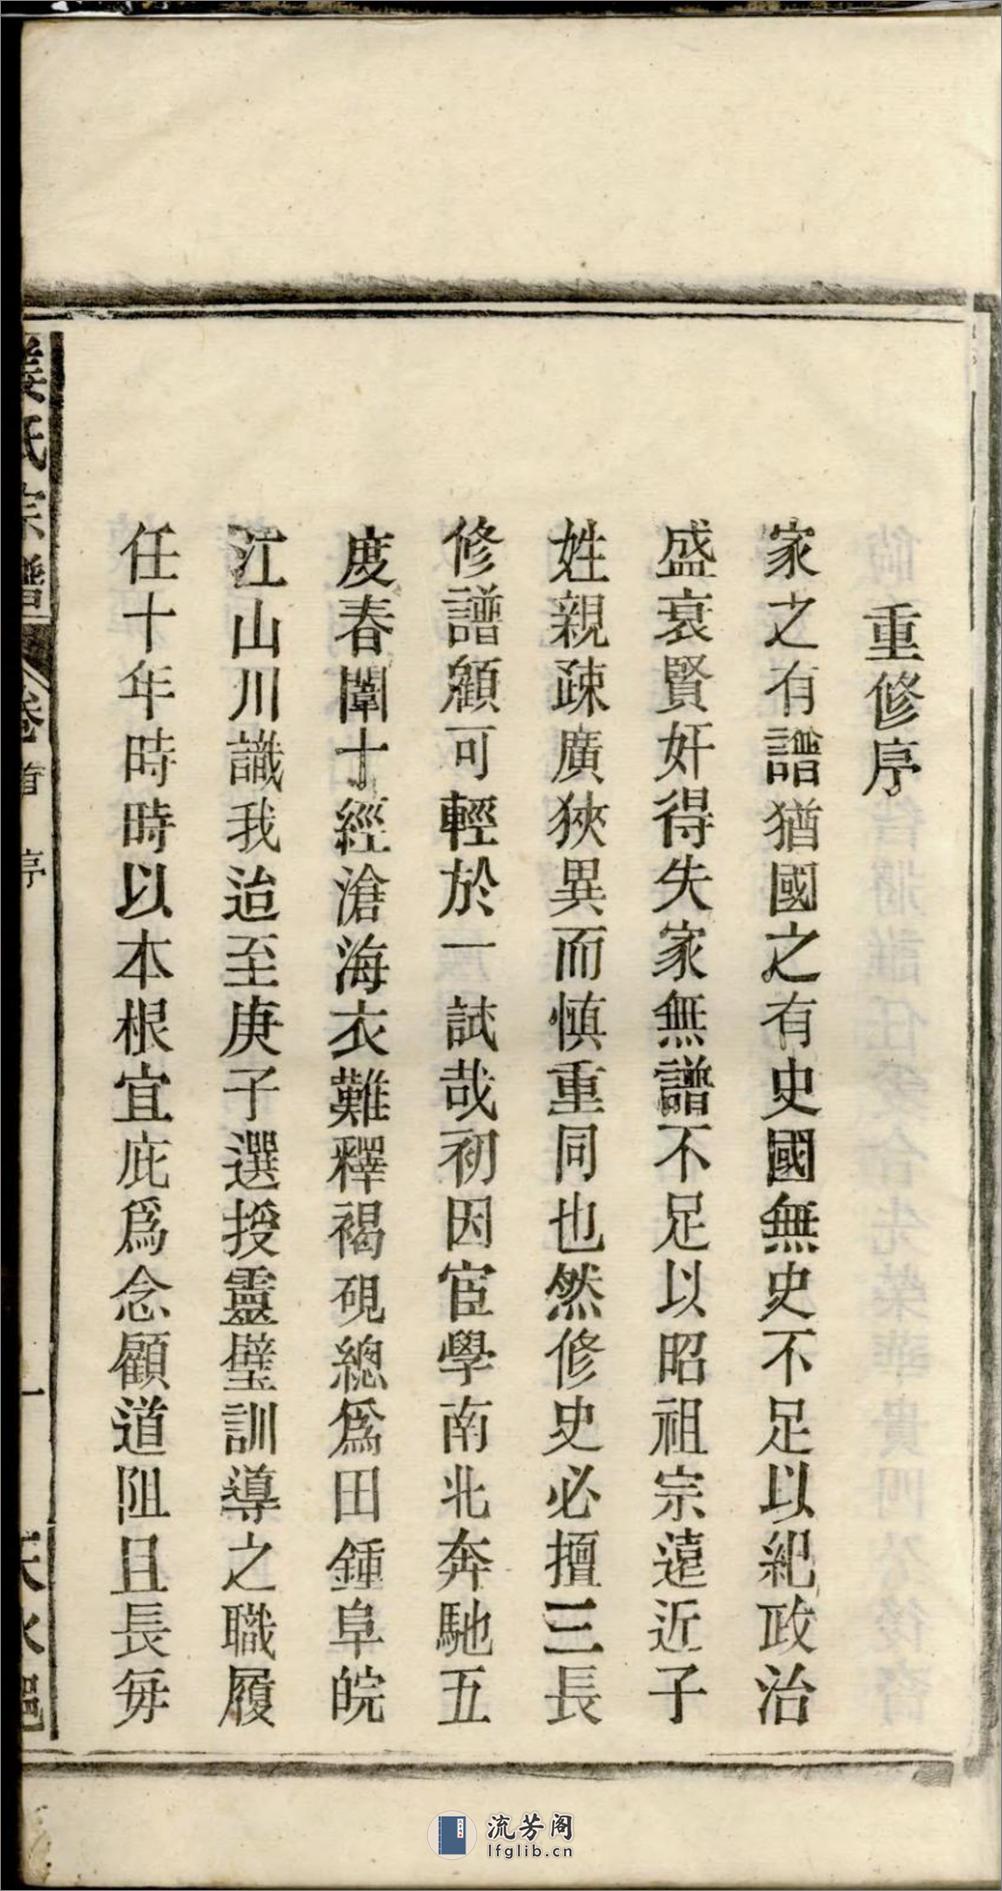 重修序
家之有譜猶國之有史國無史不足以紀政治
盛衰賢奸得失家無譜不足以昭祖宗遠近子
姓親疎廣狹異而慎重同也然修史必擅三長
修譜顧可輕於一試哉初因宦學南北奔馳五
度春闈十經滄海衣難釋褐硯總爲田鍾阜皖
江山川識我迨至庚子選授靈璧訓導之職履
任十年時時以本根宜庇爲念顧道阻且長每
姜氏宗譜 卷首 序 一 天水
流芳阁
lfglib.cn